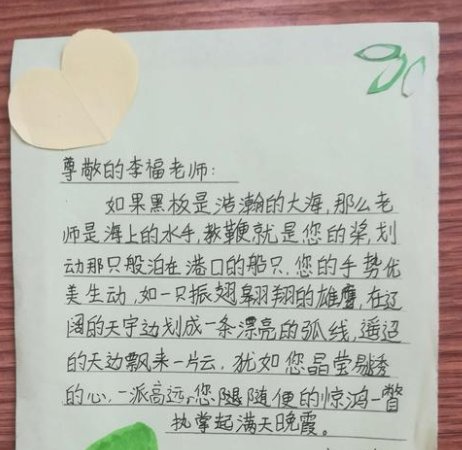 尊敬的李福老师：
如果黑板是浩瀚的大海,那么老
师是海上的水手,教鞭就是您的桨,划
动那只般泊在港口的船只.您的手势优
美生动,如一只振翅翱翔的雄鹰,在辽
阔的天宇边划成一条漂亮的弧线,遥迢
的天边飘来一片云,犹如您晶莹剔透
的心,一派高远,您随便的惊鸿一瞥
执掌起满天晚霞。